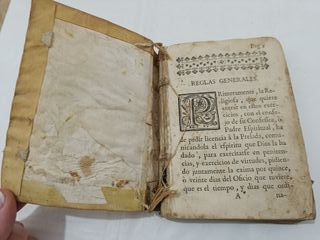 Pag. 1
REGLAS GENERALES.
PRimeramente, la Re-
ligiosa, que quiere
entrar en estos exer-
cicios, con el conse-
jo de su Confessor, ò
Padre Espiritual, ha
de pedir licencia à la Prelada, comu-
nicandola el espiritu que Dios la ha
dado, para exercitarse en peniten-
cias, y exercicios de virtudes, pidien-
do juntamente la caxa por quince,
ò veinte dias del Oficio que tuviere,
que es el tiempo, y dias que ordi-
A na-